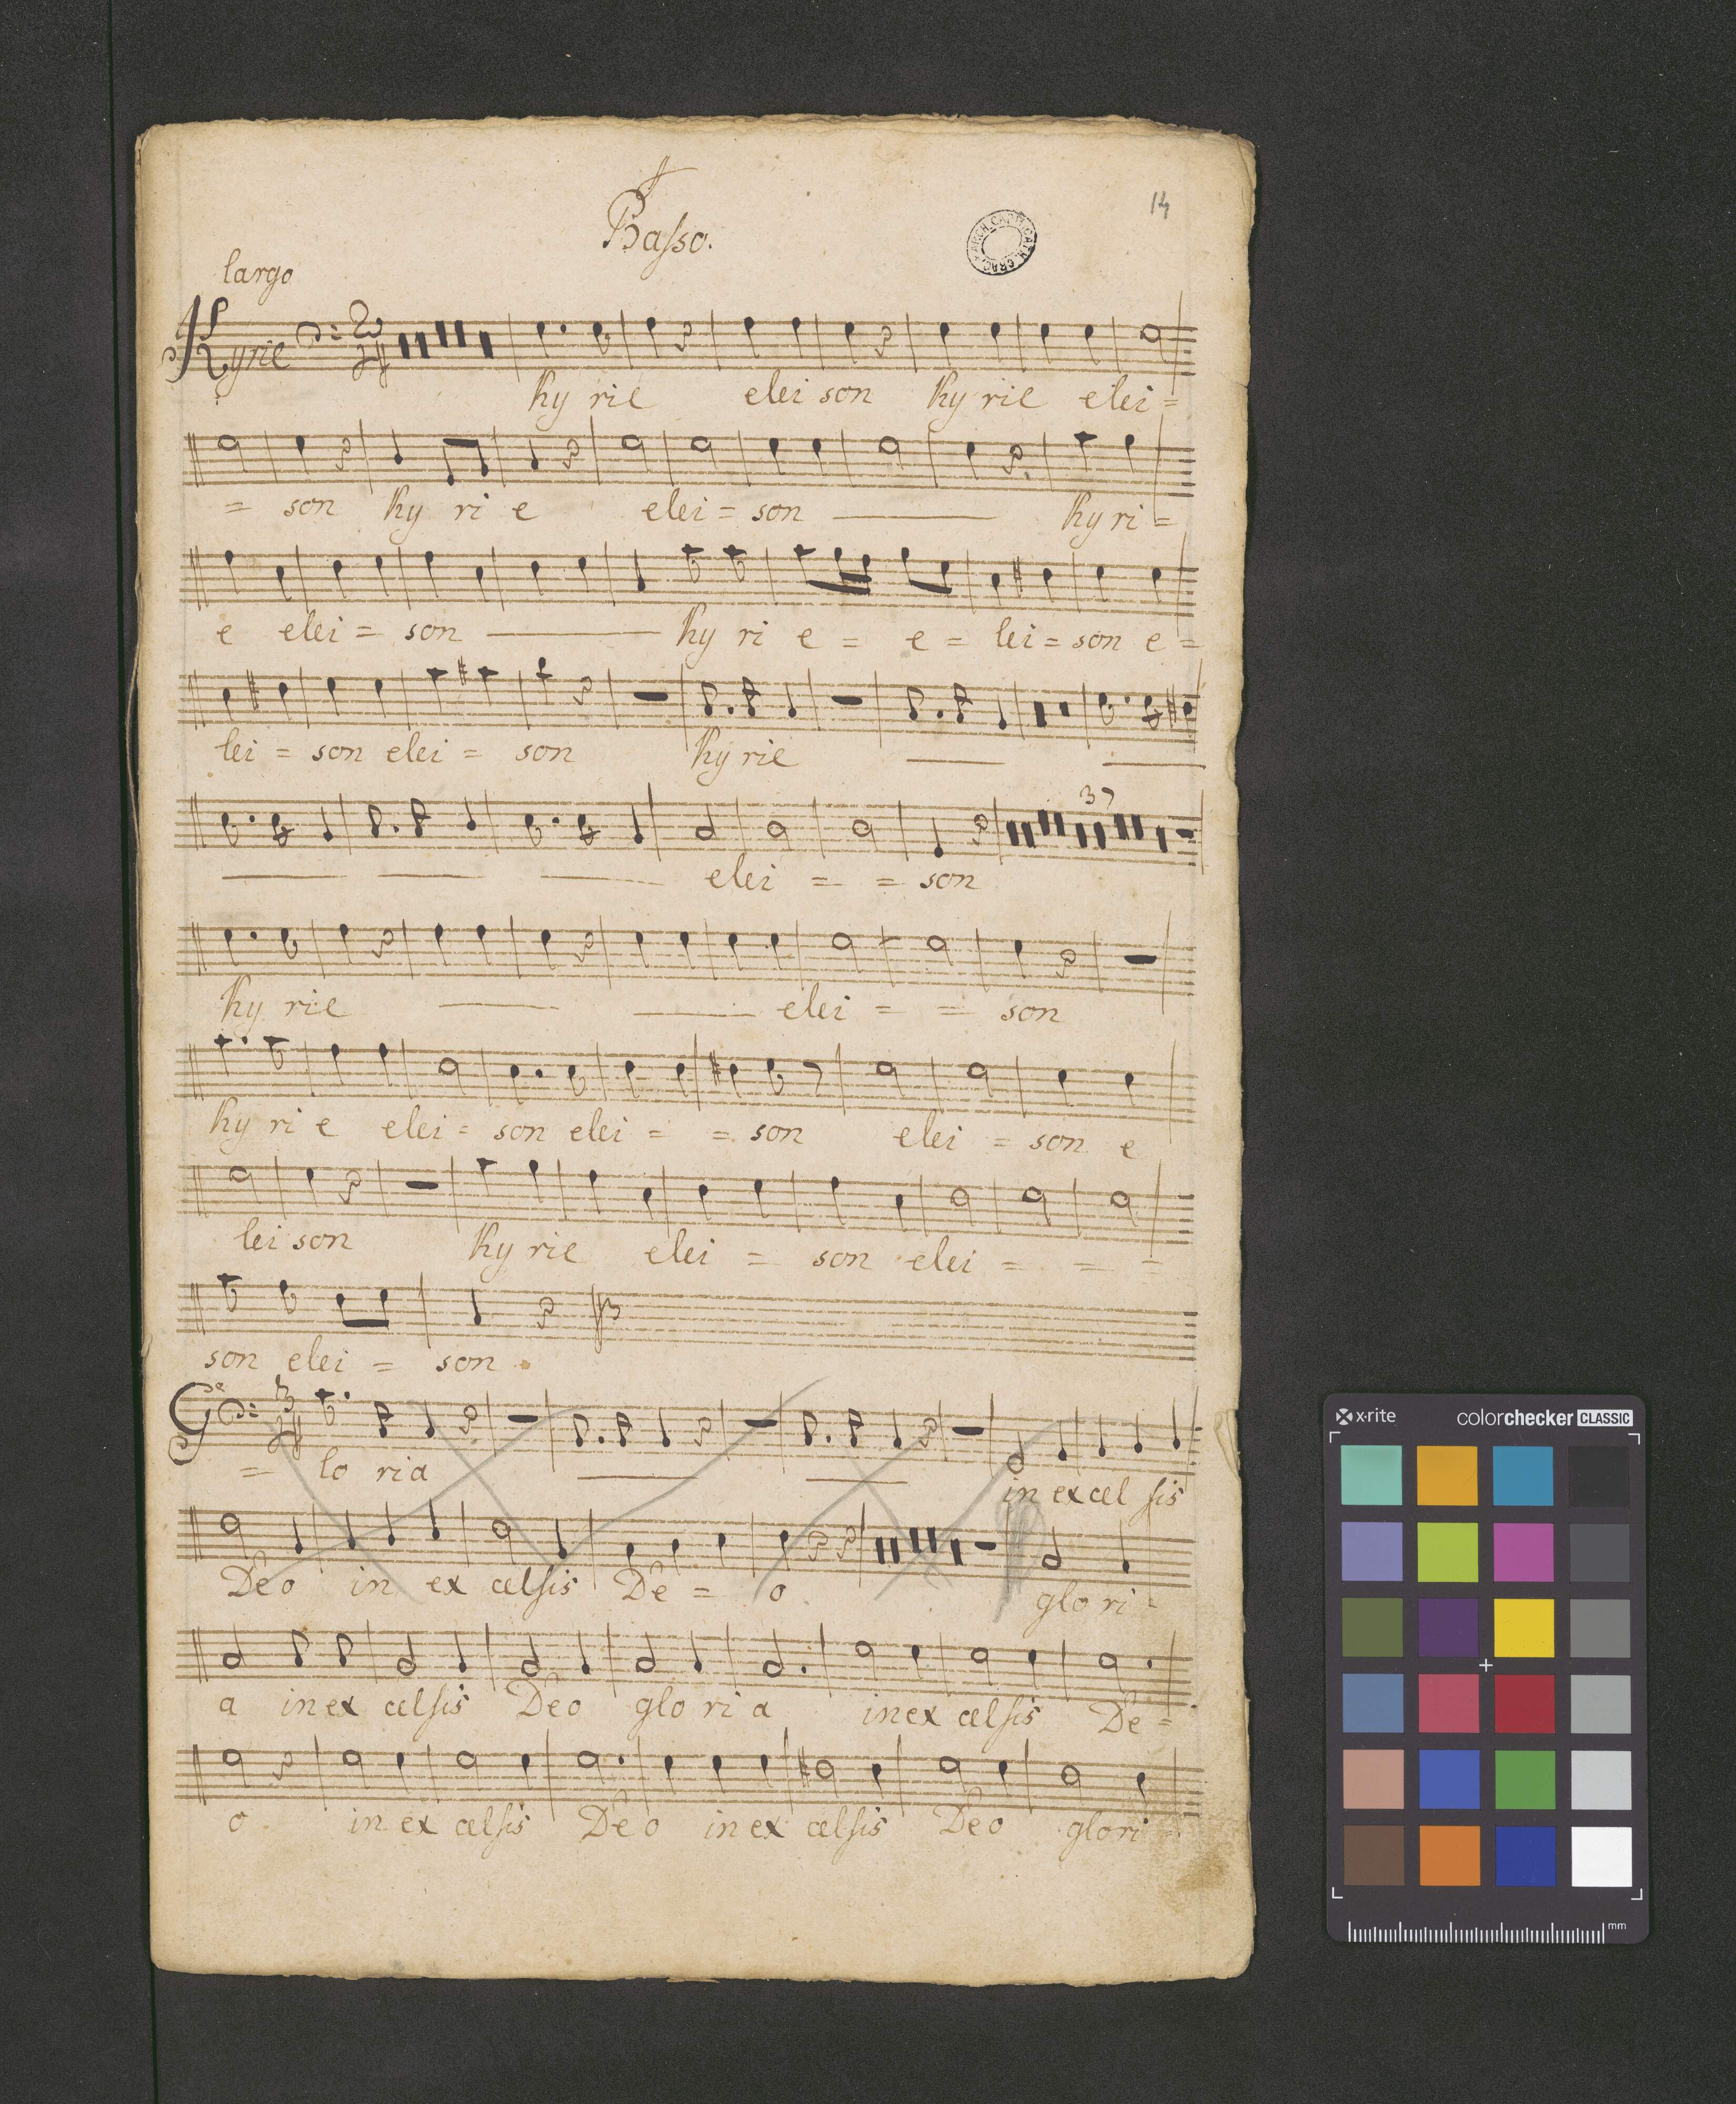 14
Basso.
ARCH. CAPIT. CATH. CRAC.
largo
Kyrie 2 4
Ky rie elei son Ky rie elei =
= son Ky ri e elei = son Ky ri =
e elei = son Ky ri e = e = lei = son e =
lei = son elei = son Ky rie
37
elei = = son
Ky rie elei = = son
Ky ri e elei = son elei = = son elei = son e
lei son Ky rie elei = son elei = = =
son elei = son
G 3 4
= lo ria in ex cel sis
Deo in ex celsis De = o glo ri =
a in ex celsis Deo glo ri a in ex celsis De =
o. in ex celsis Deo in ex celsis Deo glori =
x·rite colorchecker CLASSIC
mm